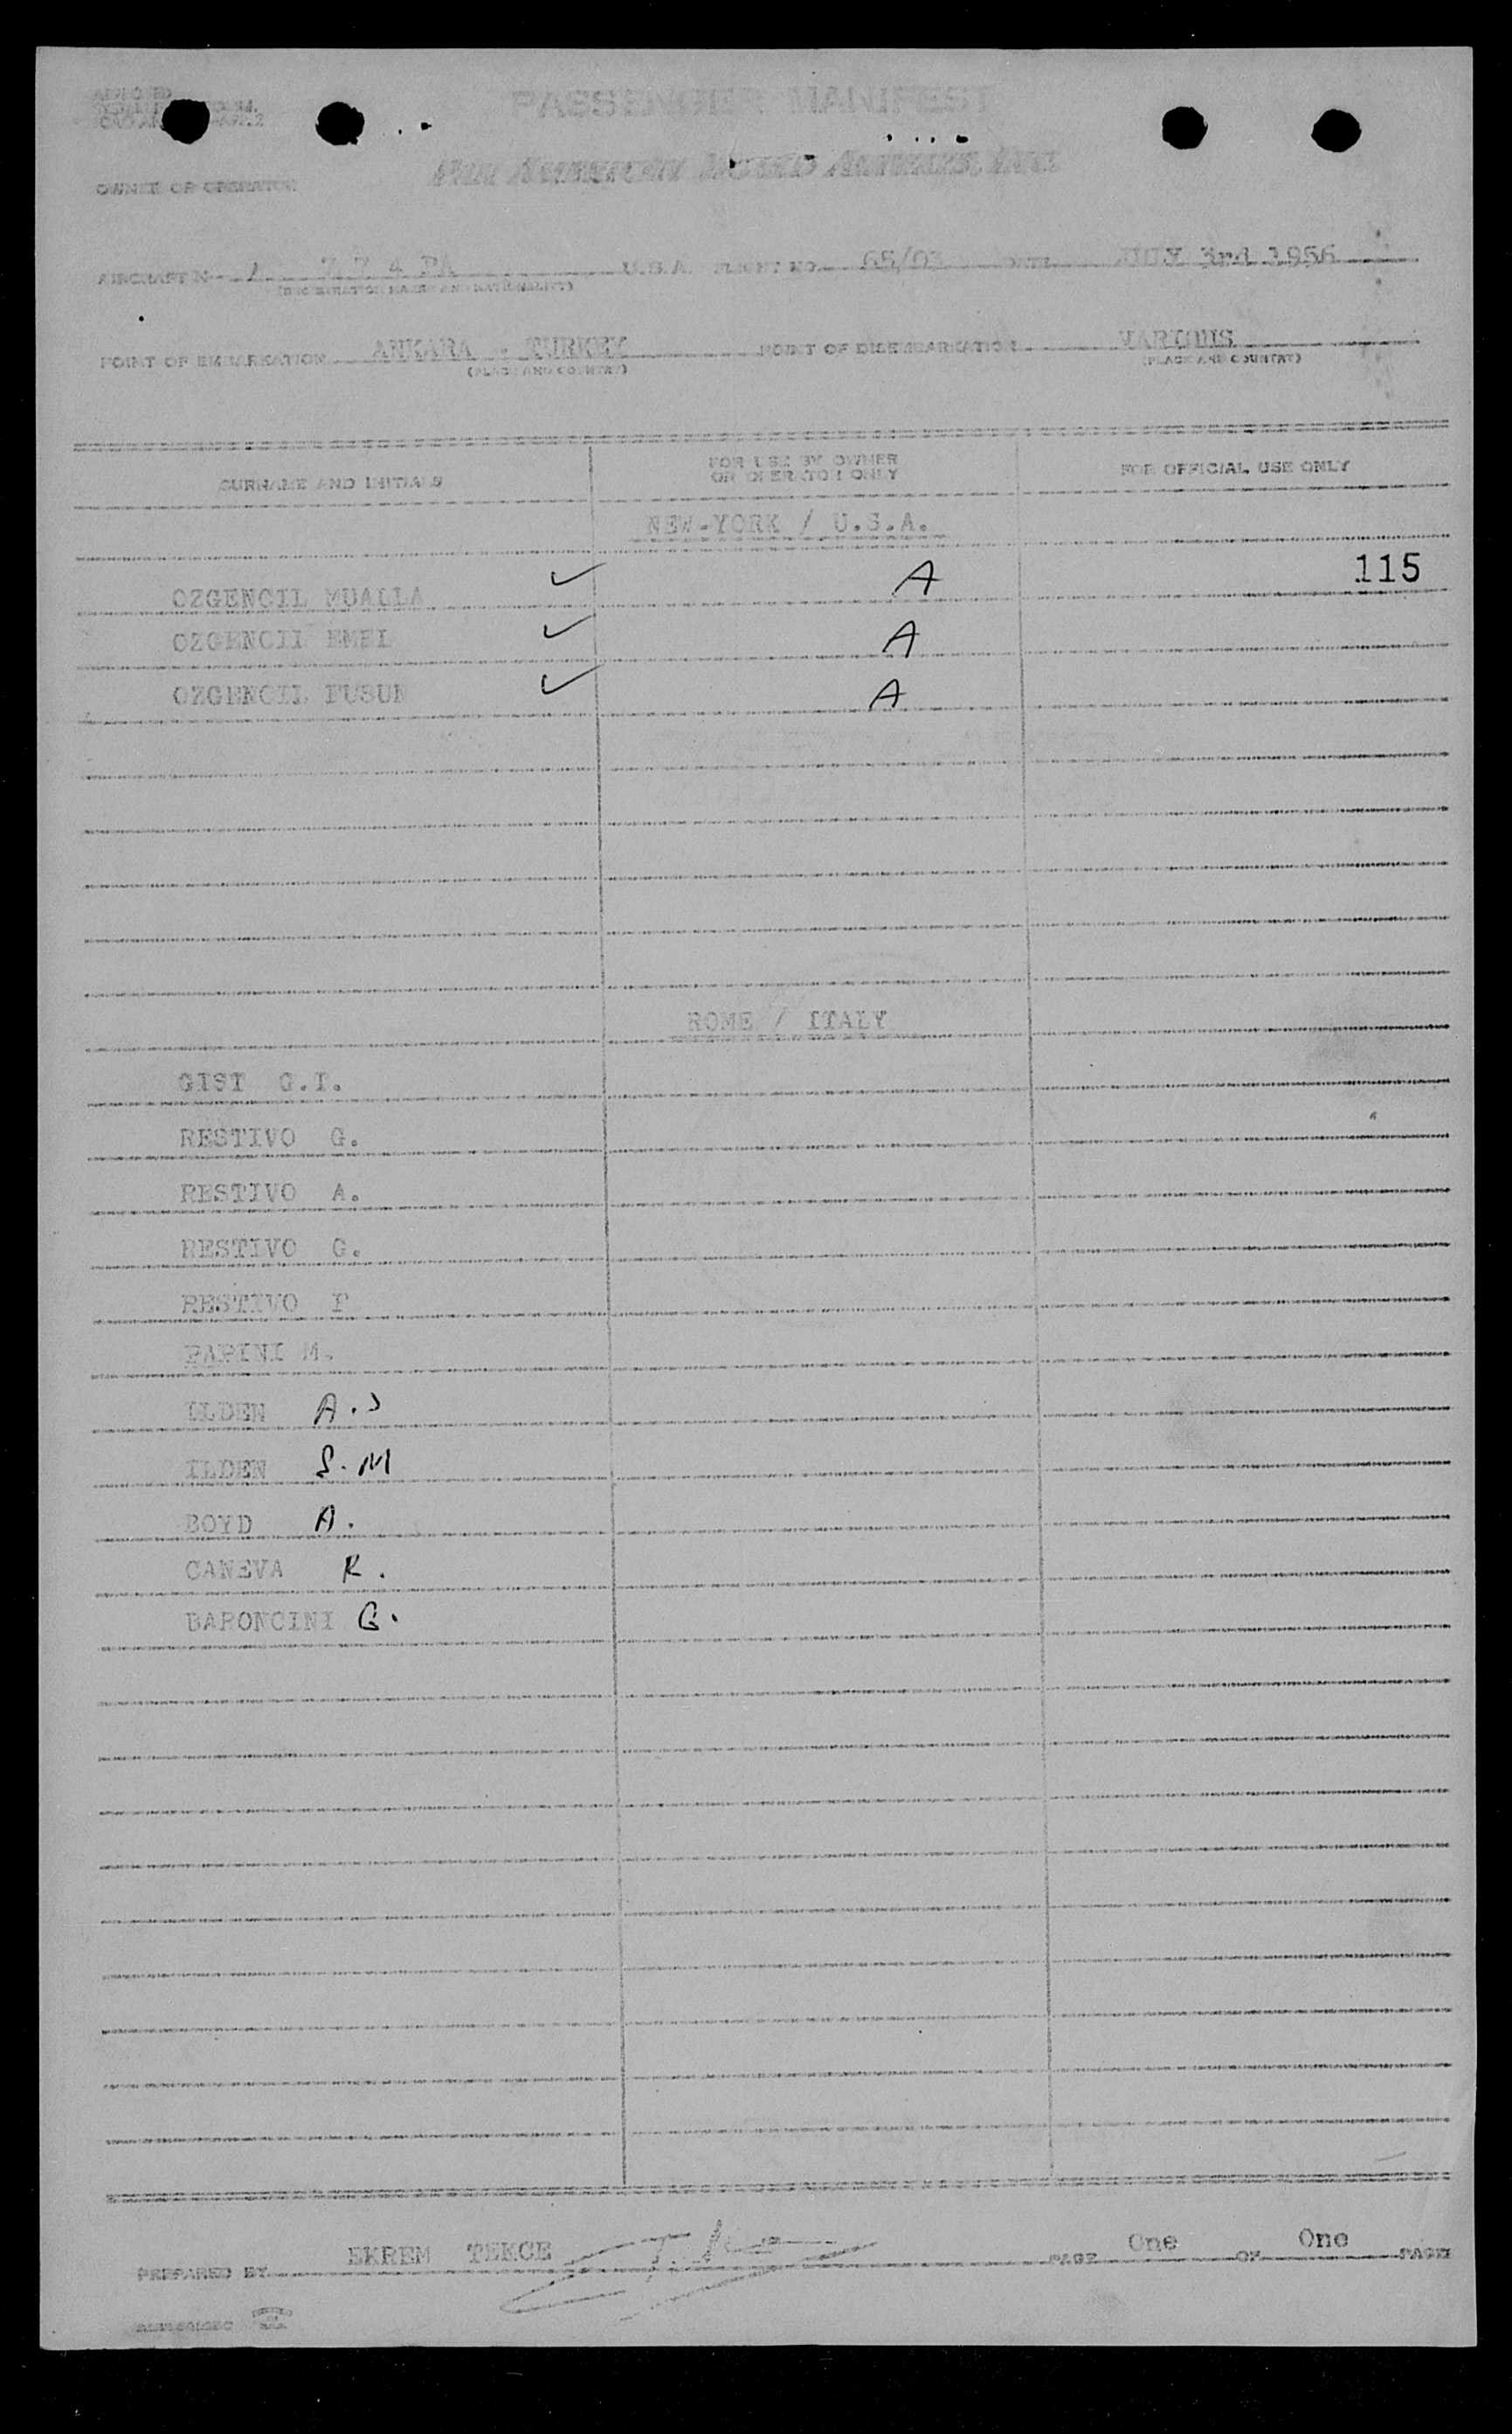 PASSENGER MANIFEST
PAN AMERICAN WORLD AIRWAYS, INC.
OWNER OR OPERATOR
AIRCRAFT N 774 PA U.S.A. FLIGHT NO. 65/03 DATE JULY 3rd 1956
(REGISTRATION MARKS AND NATIONALITY)
POINT OF EMBARKATION ANKARA - TURKEY POINT OF DISEMBARKATION VARIOUS
(PLACE AND COUNTRY) (PLACE AND COUNTRY)
SURNAME AND INITIALS FOR USE BY OWNER OR OPERATOR ONLY FOR OFFICIAL USE ONLY
NEW-YORK / U.S.A.
115
OZGENCIL MUALLA ✓ A
OZGENCIL EMEL ✓ A
OZGENCIL FUSUN ✓ A
ROME / ITALY
GIST G.I.
RESTIVO G.
RESTIVO A.
RESTIVO G.
RESTIVO F
PAPINI M.
ILDEN A.J
ILDEN S.M
BOYD A.
CANEVA R.
BARONCINI G.
PREPARED BY EKREM TEKCE PAGE One OF One PAGES